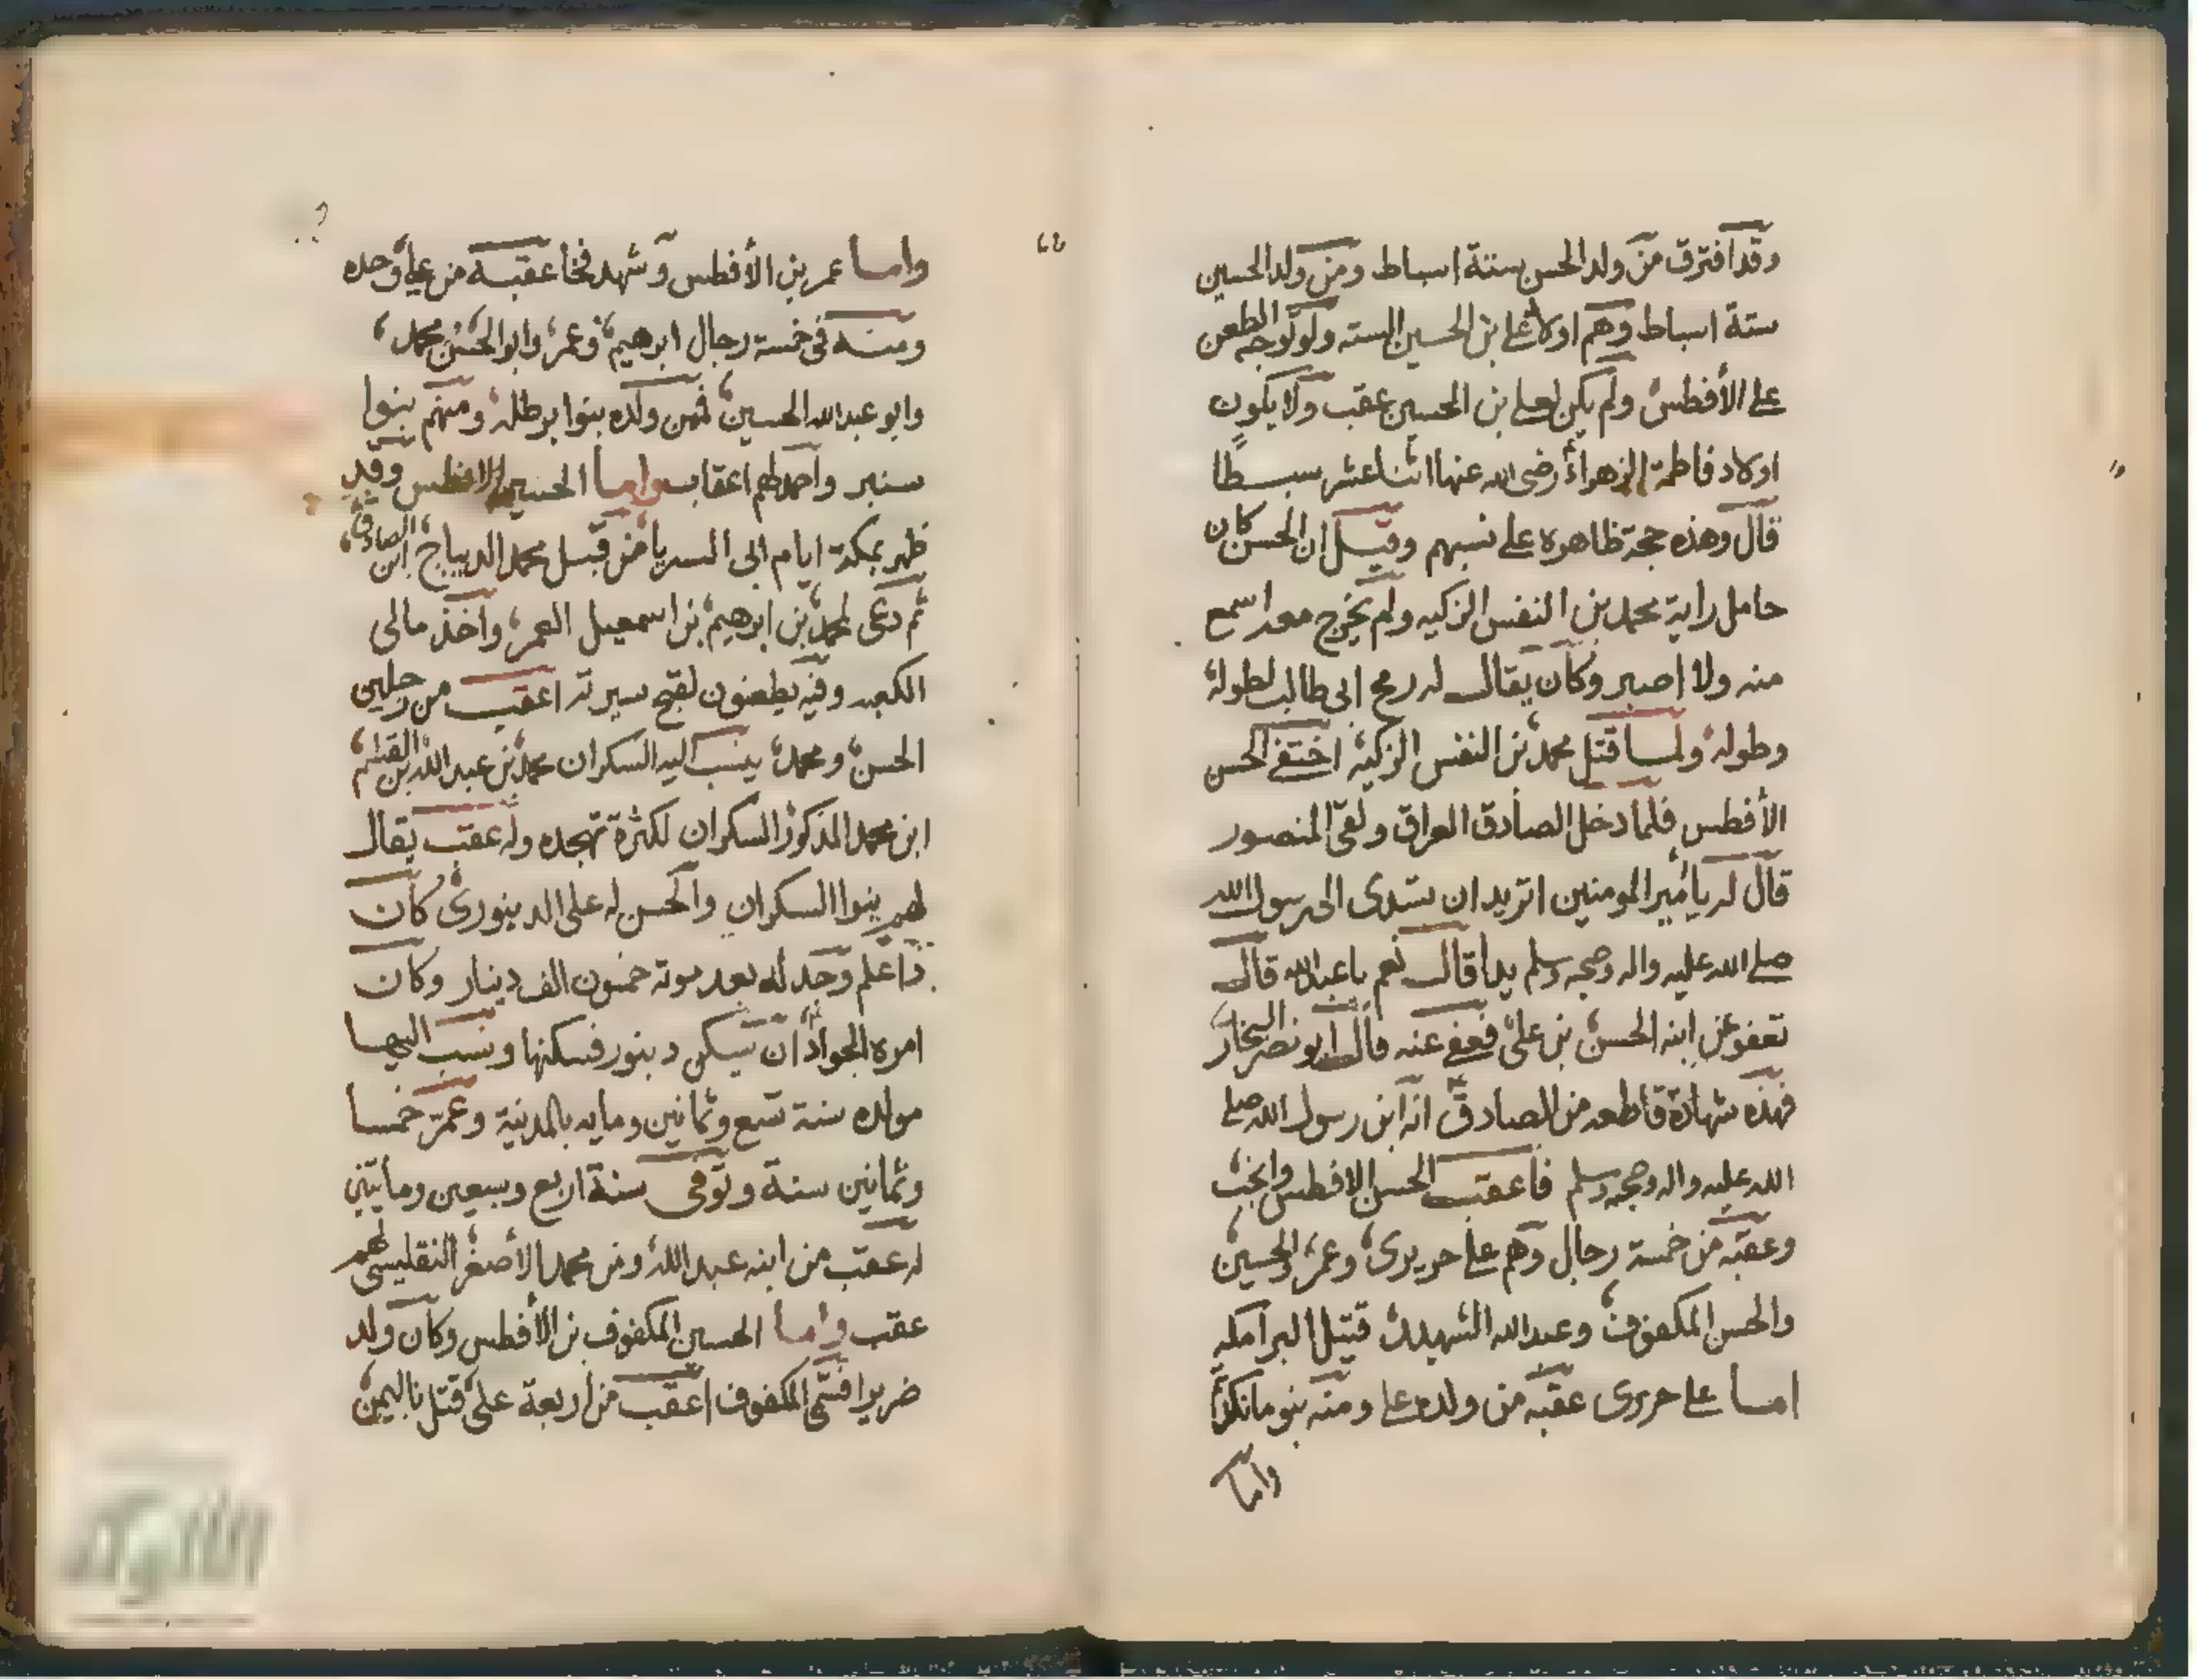 وقد افترق من ولد الحسن ستة اسباط ومن ولد الحسين
ستة اسباط وهم اولاد علي بن الحسين الستة ولو توجه الطعن
على الأفطس ولم يكن لعلي بن الحسين عقب ولا يكون
اولاد فاطمة الزهراء رضى الله عنها اثنا عشر سبطًا
قال وهذه حجة ظاهره على نسبهم وقيل ان الحسن كان
حامل راية محمد بن النفس الزكيه ولم يخرج معه اسمع
منه ولا اصبر وكان يقال له رمح ابى طالب لطوله
وطوله ولما قتل محمد بن النفس الزكيه اختفى الحسن
الأفطس فلما دخل الصادق العراق ولقى المنصور
قال له يا أمير المومنين اتريد ان تسدى الى رسول الله
صلى الله عليه واله وصحبه وسلم يدا قال نعم يا عبدالله قال
تعفو عن ابنه الحسن بن على فعفى عنه قال ابو نصر البخارى
فهذه شهادة قاطعه من الصادق انه ابن رسول الله صلى
الله عليه واله وصحبه وسلم فاعقب الحسن الافطس وانجب
وعقبه من خمسة رجال وهم على حريرى وعمر والحسين
والحسن المكفوف وعبدالله الشهيد قتيل البرامكه
اما على حررى عقبه من ولده على ومنه بنو مانكدا
واما
واما عمر بن الأفطس وشهد فخا عقبه من على وحده
ومنه فى خمسة رجال ابرهيم وعمر وابو الحسن محمد
وابو عبدالله الحسين فمن ولده بنوا برطله ومنهم بنوا
سنبر واحمد لهم اعقاب واما الحسين الافطس وقد
ظهر بمكة ايام ابى السرايا من قبل محمد الديباج ابن الصادق
ثم دعى لمحمد بن ابرهيم بن اسمعيل العمر واخذ مالى
الكعبه وفيه يطعنون لقبح سيرته اعقب من رجلين
الحسن ومحمد ينسب اليه السكران محمد بن عبدالله بن القاسم
ابن محمد المذكور السكران لكثرة تهجده وله عقب يقال
لهم بنوا السكران والحسن له على الدينورى كان
ذا علم وجد له بعد موته خمسون الف دينار وكان
امره الجواد ان يسكن دينور فسكنها ونسب اليها
مولده سنة تسع وثمانين ومايه بالمدينة وعمر خمسا
وثمانين سنة وتوفى سنة اربع وسبعين ومأيتين
له عقب من ابنه عبدالله ومن محمد الأصغر التقليسى لهم
عقب واما الحسين المكفوف بن الأفطس وكان ولد
ضريرا فسمى المكفوف اعقب من اربعة على قتل باليمن